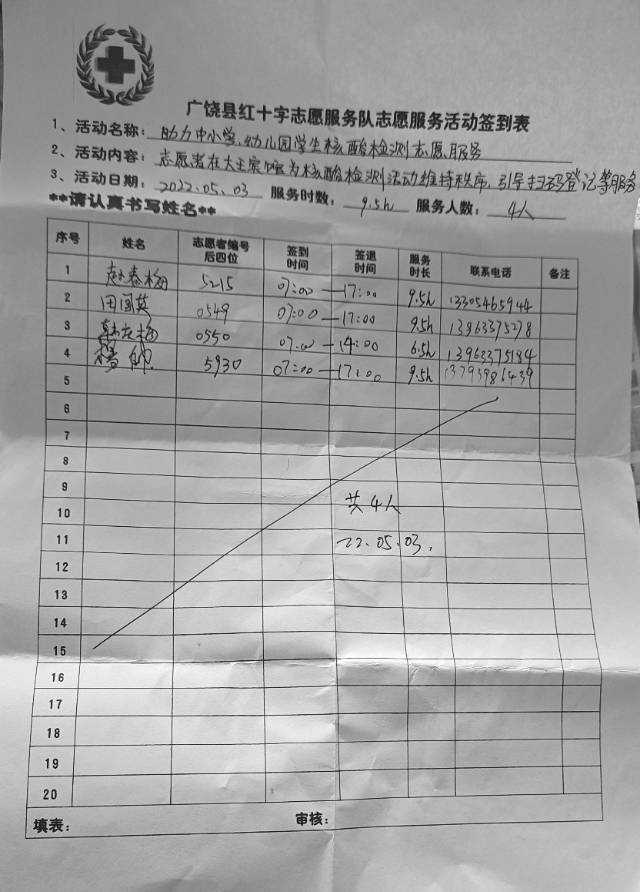 广饶县红十字志愿服务队志愿服务活动签到表
1、活动名称：助力中小学、幼儿园学生核酸检测志愿服务
2、活动内容：志愿者在大王宾馆为核酸检测活动维持秩序，引导扫码登记等服务
3、活动日期：2022.05.03 服务时数：9.5h 服务人数：4人
**请认真书写姓名**
序号 姓名 志愿者编号后四位 签到时间 签退时间 服务时长 联系电话 备注
1 赵春梅 5215 07:00—17:00 9.5h 13305465944
2 田国英 0549 07:00—17:00 9.5h 13963375278
3 韩友梅 0550 07:00—14:00 6.5h 13963375184
4 5930 07:00—17:00 9.5h 13793986439
5
6
7
8
9
10 共4人
11 22.05.03.
12
13
14
15
16
17
18
19
20
填表： 审核：